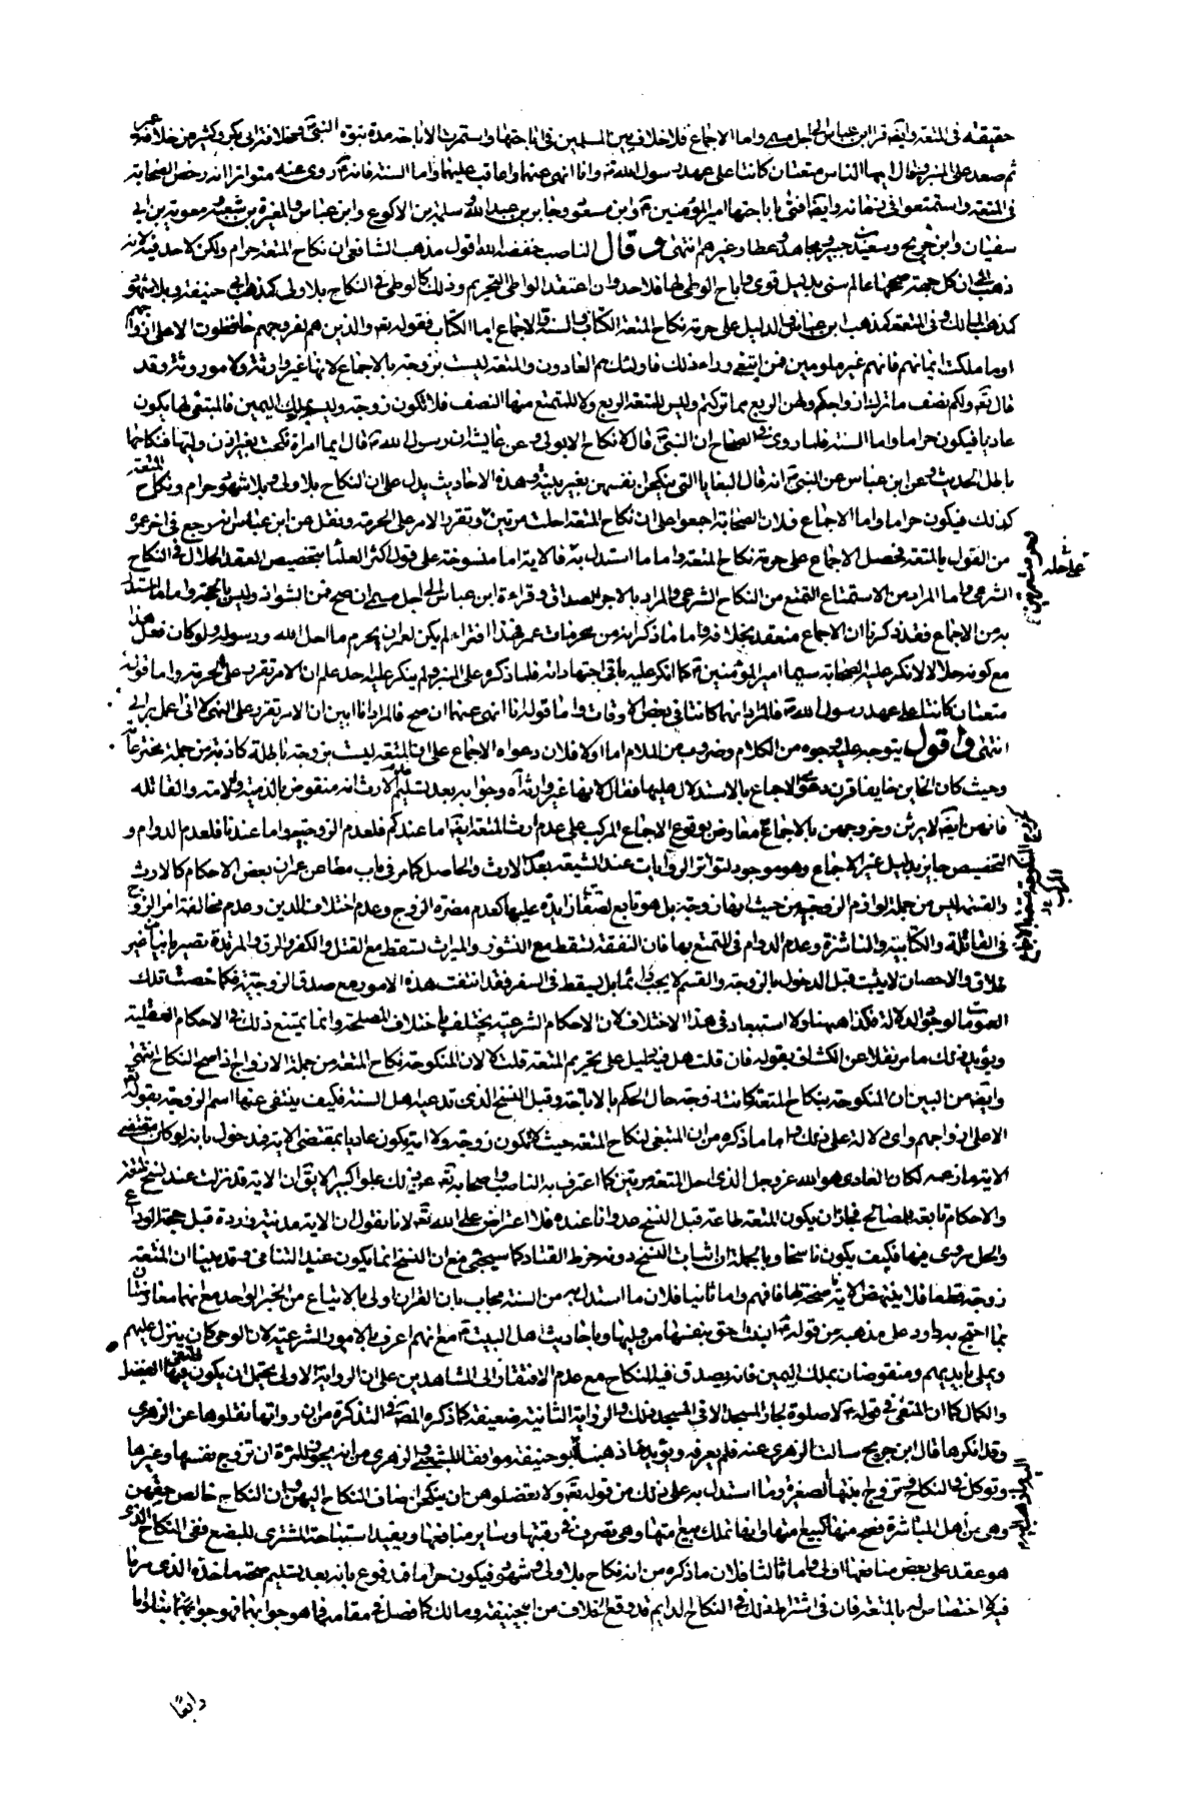 حقيقته في المتعة وايضا قرأ ابن عباس الى اجل مسمى واما الاجماع فلا خلاف بين المسلمين في اباحتها واستمرت الاباحة مدة نبوة النبي وخلافة ابي بكر وكثير من خلافة عمر
ثم صعد على المنبر وقال ايها الناس متعتان كانتا على عهد رسول الله وانا انهى عنهما واعاقب عليهما واما السنة فانه روى عنه متواترا انه رخص الصحابة
في المتعة واستمتعوا في زمانه وايضا افتى باباحتها امير المؤمنين وابن مسعود وجابر بن عبد الله وسلمة بن الاكوع وابن عباس والمغيرة بن شعبة ومعوية بن ابي
سفيان وابن جريج وسعيد بن جبير ومجاهد وعطاء وغيرهم انتهى وقال الناصب خفضه الله اقول مذهب الشافعي ان نكاح المتعة حرام ولكن لا حد فيه لانه
ذهب الى ان كل جهة صححها عالم سني بدليل قوي واباح الوطي لها فلا حد وان اعتقد الواطي التحريم وذلك كالوطي في النكاح بلا ولي كمذهب ابي حنيفة وبلا شهود
كمذهب مالك وفي المتعة كمذهب ابن عباس والدليل على حرمة نكاح المتعة الكتاب والسنة والاجماع اما الكتاب فقوله تع والذين هم لفروجهم حافظون الا على ازواجهم
او ما ملكت ايمانهم فانهم غير ملومين فمن ابتغى وراء ذلك فاولئك هم العادون والمتعة ليست بزوجة بالاجماع لانها غير وارثة ولا موروثة وقد
قال تع ولكم نصف ما ترك ازواجكم ولهن الربع مما تركتم وليس للمتعة الربع ولا للمتمتع منها النصف فلا تكون زوجة وليست بملك اليمين فالمبتغي لها يكون
عاديا فيكون حراما واما السنة فلما روى في الصحاح ان النبي قال لا نكاح الا بولي وعن عايشة ان رسول الله قال ايما امراة نكحت بغير اذن وليها فنكاحها
باطل الحديث وعن ابن عباس عن النبي انه قال البغايا التي ينكحن انفسهن بغير بينة وهذه الاحاديث يدل على ان النكاح بلا ولي وبلا شهود حرام ونكاح المتعة
كذلك فيكون حراما واما الاجماع فلان الصحابة اجمعوا على ان نكاح المتعة احلت مرتين وتقرر الامر على الحرمة ونقل عن ابن عباس انه رجع في اخر عمره
من القول بالمتعة فحصل الاجماع على حرمة نكاح المتعة واما ما استدل به فالاية اما منسوخة على قول اكثر العلماء بتخصيص العقد الحلال في النكاح
الشرعي واما المراد من الاستمتاع التمتع من النكاح الشرعي والمراد بالاجر الصداق وقراءة ابن عباس الى اجل مسمى ان صح فمن الشواذ وليس بحجة واما ما استدل
به من الاجماع فقد ذكرنا ان الاجماع منعقد بخلافه واما ما ذكر انه من محرمات عمر فهذا افتراء لم يكن لعمر ان يحرم ما احل الله ورسوله ولو كان فعل هذا
مع كونه حلالا لانكر عليه الصحابة سيما امير المؤمنين كما انكر عليه باقي اجتهاداته فلما ذكره على المنبر ولم ينكر عليه احد علم ان الامر تقرر على الحرمة واما قوله
متعتان كانتا على عهد رسول الله فالمراد انهما كانتا في بعض الاوقات واما قوله انا انهى عنهما ان صح فالمراد انا ابين ان الامر تقرر على النهي لا اني اعمل برايي
انتهى واقول يتوجه عليه وجوه من الكلام وضروب من الملام اما اولا فلان دعواه الاجماع على ان المتعة ليست بزوجة باطلة كاذبة من جملة مخترعاته
وحيث كان الخاين خايفا قرن دعوى الاجماع بالاستدلال عليها فقال لانها غير وارثة وجوابه بعد تسليم عدم الارث انه منقوض بالذمية والامة والقاتلة
فانهن ايضا لا يرثن وخروجهن بالاجماع معارض بوقوع الاجماع المركب على عدم ارث المتعة ايضا اما عندكم فلعدم الزوجية واما عندنا فلعدم الدوام و
التخصيص جايز بدليل غير الاجماع وهو موجود لتواتر الروايات عند الشيعة بعدم الارث والحاصل كما مر في باب مطاعن عمر ان بعض الاحكام كالارث
والقسمة ليس من جملة لوازم الزوجية من حيث انها زوجة بل هو تابع لصفة زايدة عليها كعدم مضرة الزوج وعدم اختلاف الدين وعدم مخالفة امر الزوج
في القاتلة والكتابية والناشزة وعدم الدوام في المتمتع بها فان النفقة تسقط مع النشوز والميراث تسقط مع القتل والكفر والرق والمرتدة تصير باينا بغير
طلاق والاحصان لا يثبت قبل الدخول بالزوجة والقسم لا يجب دائما بل يسقط في السفر فقد انتفت هذه الامور مع صدق الزوجية فكما خصت تلك
العمومات لوجود الدلالة فكذا ههنا ولا استبعاد في هذا الاختلاف لان الاحكام الشرعية يختلف باختلاف المصلحة وانما يمتنع ذلك في الاحكام العقلية
ويؤيد ذلك ما مر نقلا عن الكشاف بقوله فان قلت هل فيه دليل على تحريم المتعة قلت لا لان المنكوحة نكاح المتعة من جملة الازواج اذا صح النكاح انتهى
وايضا من البين ان المنكوحة بنكاح المتعة كانت زوجة حال الحكم بالاباحة وقبل النسخ الذي تدعيه اهل السنة فكيف ينتفي عنها اسم الزوجية بقوله تع
الا على ازواجهم واي دلالة على ذلك واما ما ذكره من ان المبتغي لنكاح المتعة حيث لا تكون زوجة ولا امة يكون عاديا بمقتضى الاية فمدخول بانه لو كان مقتضى
الاية ما زعمه لكان العادي هو الله عز وجل الذي احل المتعة مرتين كما اعترف به الناصب واصحابه تع عن ذلك علوا كبيرا لا يقال ان الاية قد نزلت عند نسخ المتعة
والاحكام تابعة للمصالح فجاز ان يكون المتعة طاعة قبل النسخ عدوانا عنده فلا اعتراض على الله تع لانا نقول ان الاية مدنية واردة قبل حجة الوداع
والحل مروي فيها فكيف يكون ناسخا وبالجملة ان اثبات النسخ دونه خرط القتاد كما سيجيء مع ان النسخ انما يكون عند التنافي وقد بينا ان المتعة
زوجة قطعا فلا ينتهض الاية ناسخة لها فافهم واما ثانيا فلان ما استدل به من السنة مجاب بان القران اولى بالاتباع من الخبر الواحد مع انهما معارضان
بما احتج به داود على مذهبه من قوله الثيب احق بنفسها من وليها وباحاديث اهل البيت مع انهم اعرف بالامور الشرعية لان الوحي كان ينزل عليهم
ويملى بايديهم ومنقوضان بملك اليمين فانه يصدق فيه النكاح مع عدم الافتقار الى الشاهدين على ان الرواية الاولى يحتمل ان يكون المنفي فيها الفضل
والكمال كما ان المنفي في قوله لا صلوة لجار المسجد الا في المسجد ذلك والرواية الثانية ضعيفة كما ذكره المص في التذكرة من ان رواتها نقلوها عن الزهري
وقد انكرها قال ابن جريج سالت الزهري عنه فلم يعرفه ويؤيد ما ذهب اليه ابو حنيفة موافقا للشعبي والزهري من انه يجوز للمراة ان تزوج نفسها وغيرها
وتوكل في النكاح وتزوج ابنتها الصغيرة وما استدل به على ذلك من قوله تع ولا تعضلوهن ان ينكحن اضاف النكاح اليهن وبان النكاح خالص حقهن
وهي من اهل المباشرة فصح منها كبيع امتها وانها تملك بيع امتها وهي تصرف في رقبتها وساير منافعها ويفيد استباحة المشتري للبضع ففي النكاح الذي
هو عقد على بعض منافعها اولى واما ثالثا فلان ما ذكره من انه نكاح بلا ولي وشهود فيكون حراما مدفوع بانه بعد تسليم صحة ماخذه الذي مر ما
فيه لا اختصاص له بالمتعة فان في اشتراط ذلك في النكاح الدايم قد وقع الخلاف من ابي حنيفة ومالك كما فصل في مقامه فما هو جوابهما فهو جوابنا
رابعا